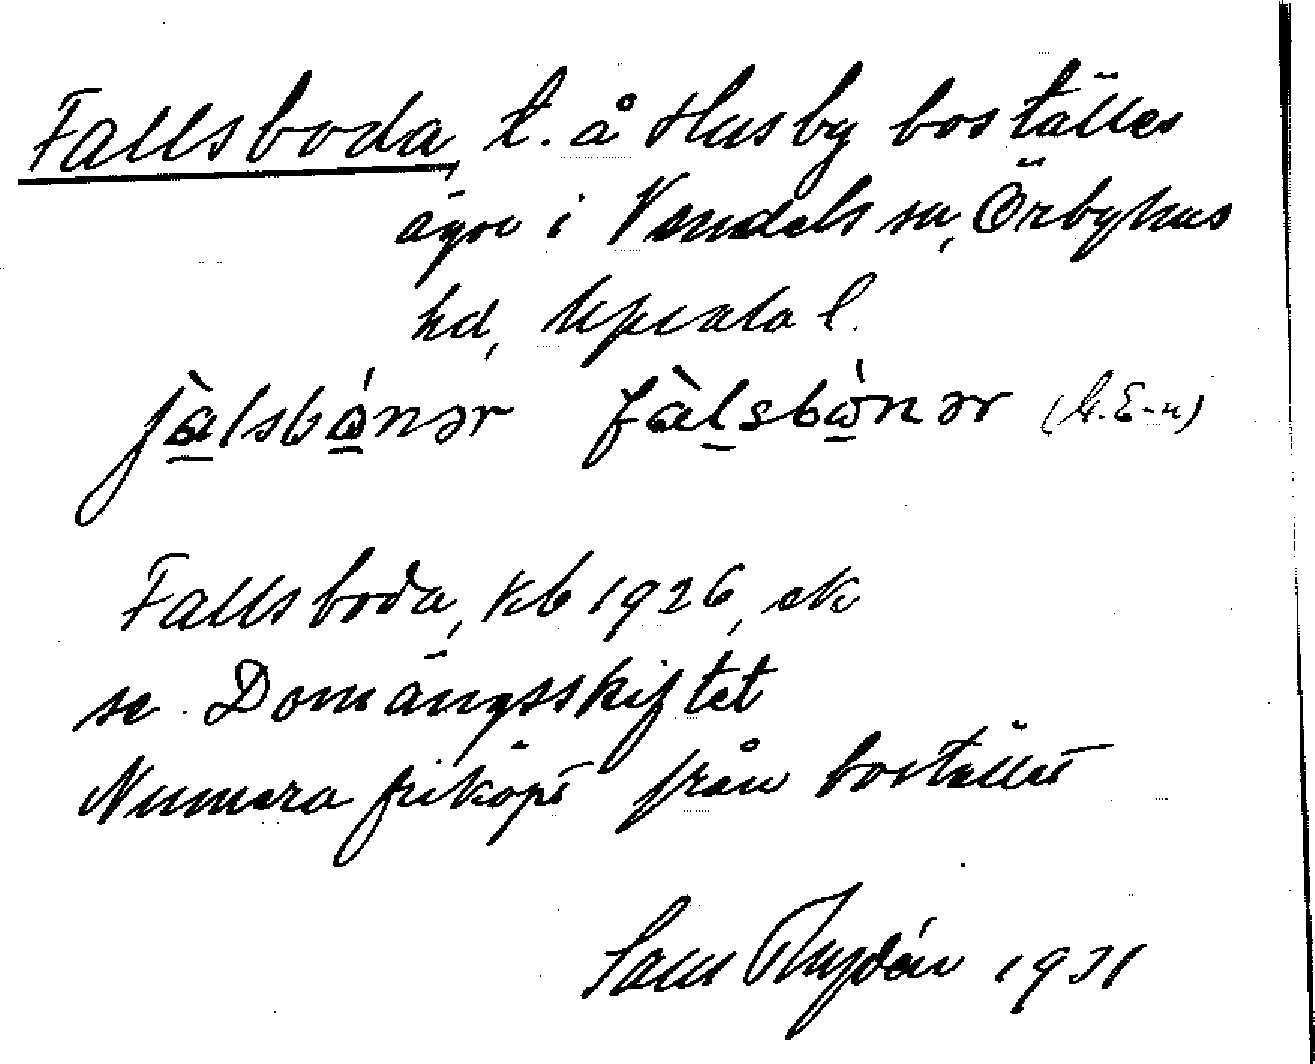 Fallsboda, t. å Husby boställes
ägor i Vendels sn, Örbyhus
hd, Upsala l.
fàlsbónər fàlsbónər
Fallsboda, kb 1926, ek
se Domängsskiftet
Numera friköpt från bostället
Sam Rydén 1931